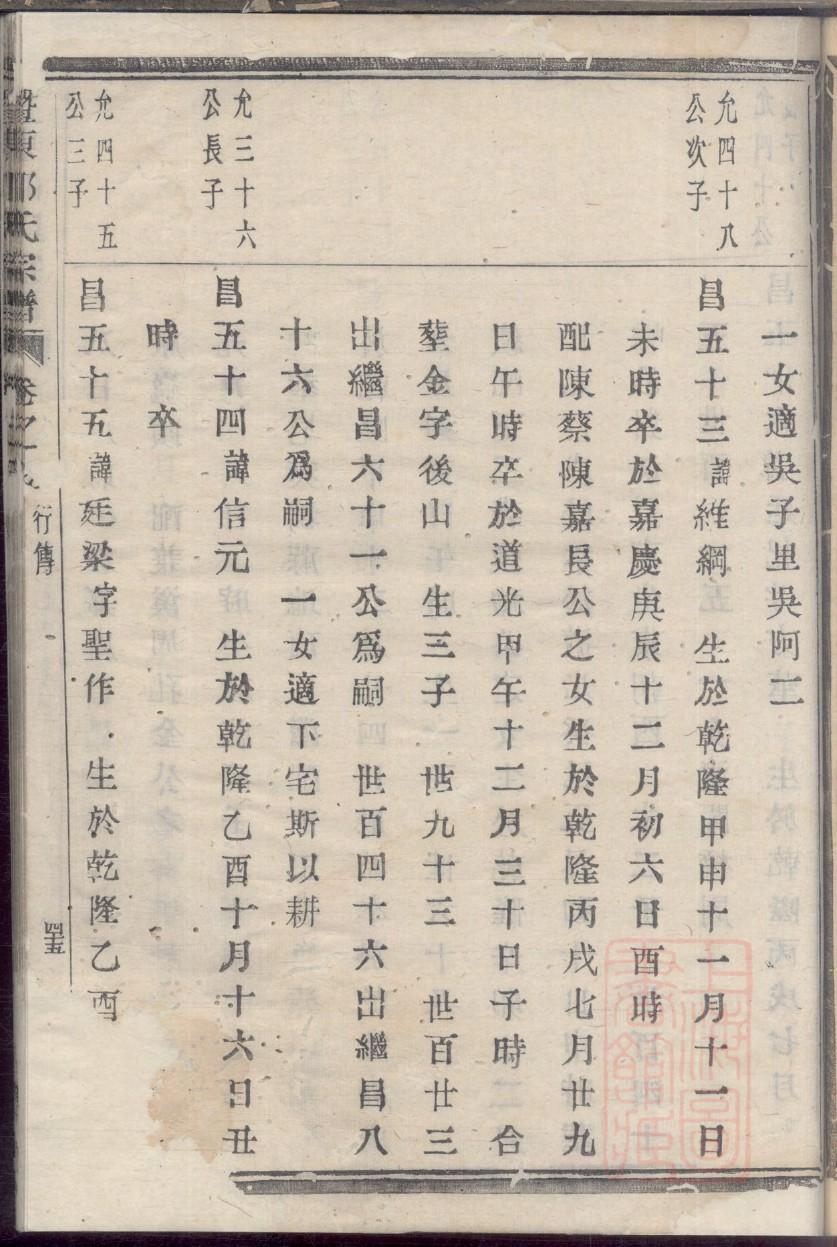 一女適吳子里吳阿二
允四十八
公次子
昌五十三諱維綱 生於乾隆甲申十一月十一日
未時卒於嘉慶庚辰十二月初六日酉時
配陳蔡陳嘉長公之女生於乾隆丙戌七月廿九
日午時卒於道光甲午十二月三十日子時二合
塟金字後山 生三子 世九十三 世百廿三
出繼昌六十一公爲嗣 世百四十六出繼昌八
十六公爲嗣 一女適下宅斯以耕
允三十六
公長子
昌五十四諱信元 生於乾隆乙酉十月十六日丑
時 卒
允四十五
公三子
昌五十五諱廷梁字聖作 生於乾隆乙酉
氏宗譜 卷之十 行傳 五四